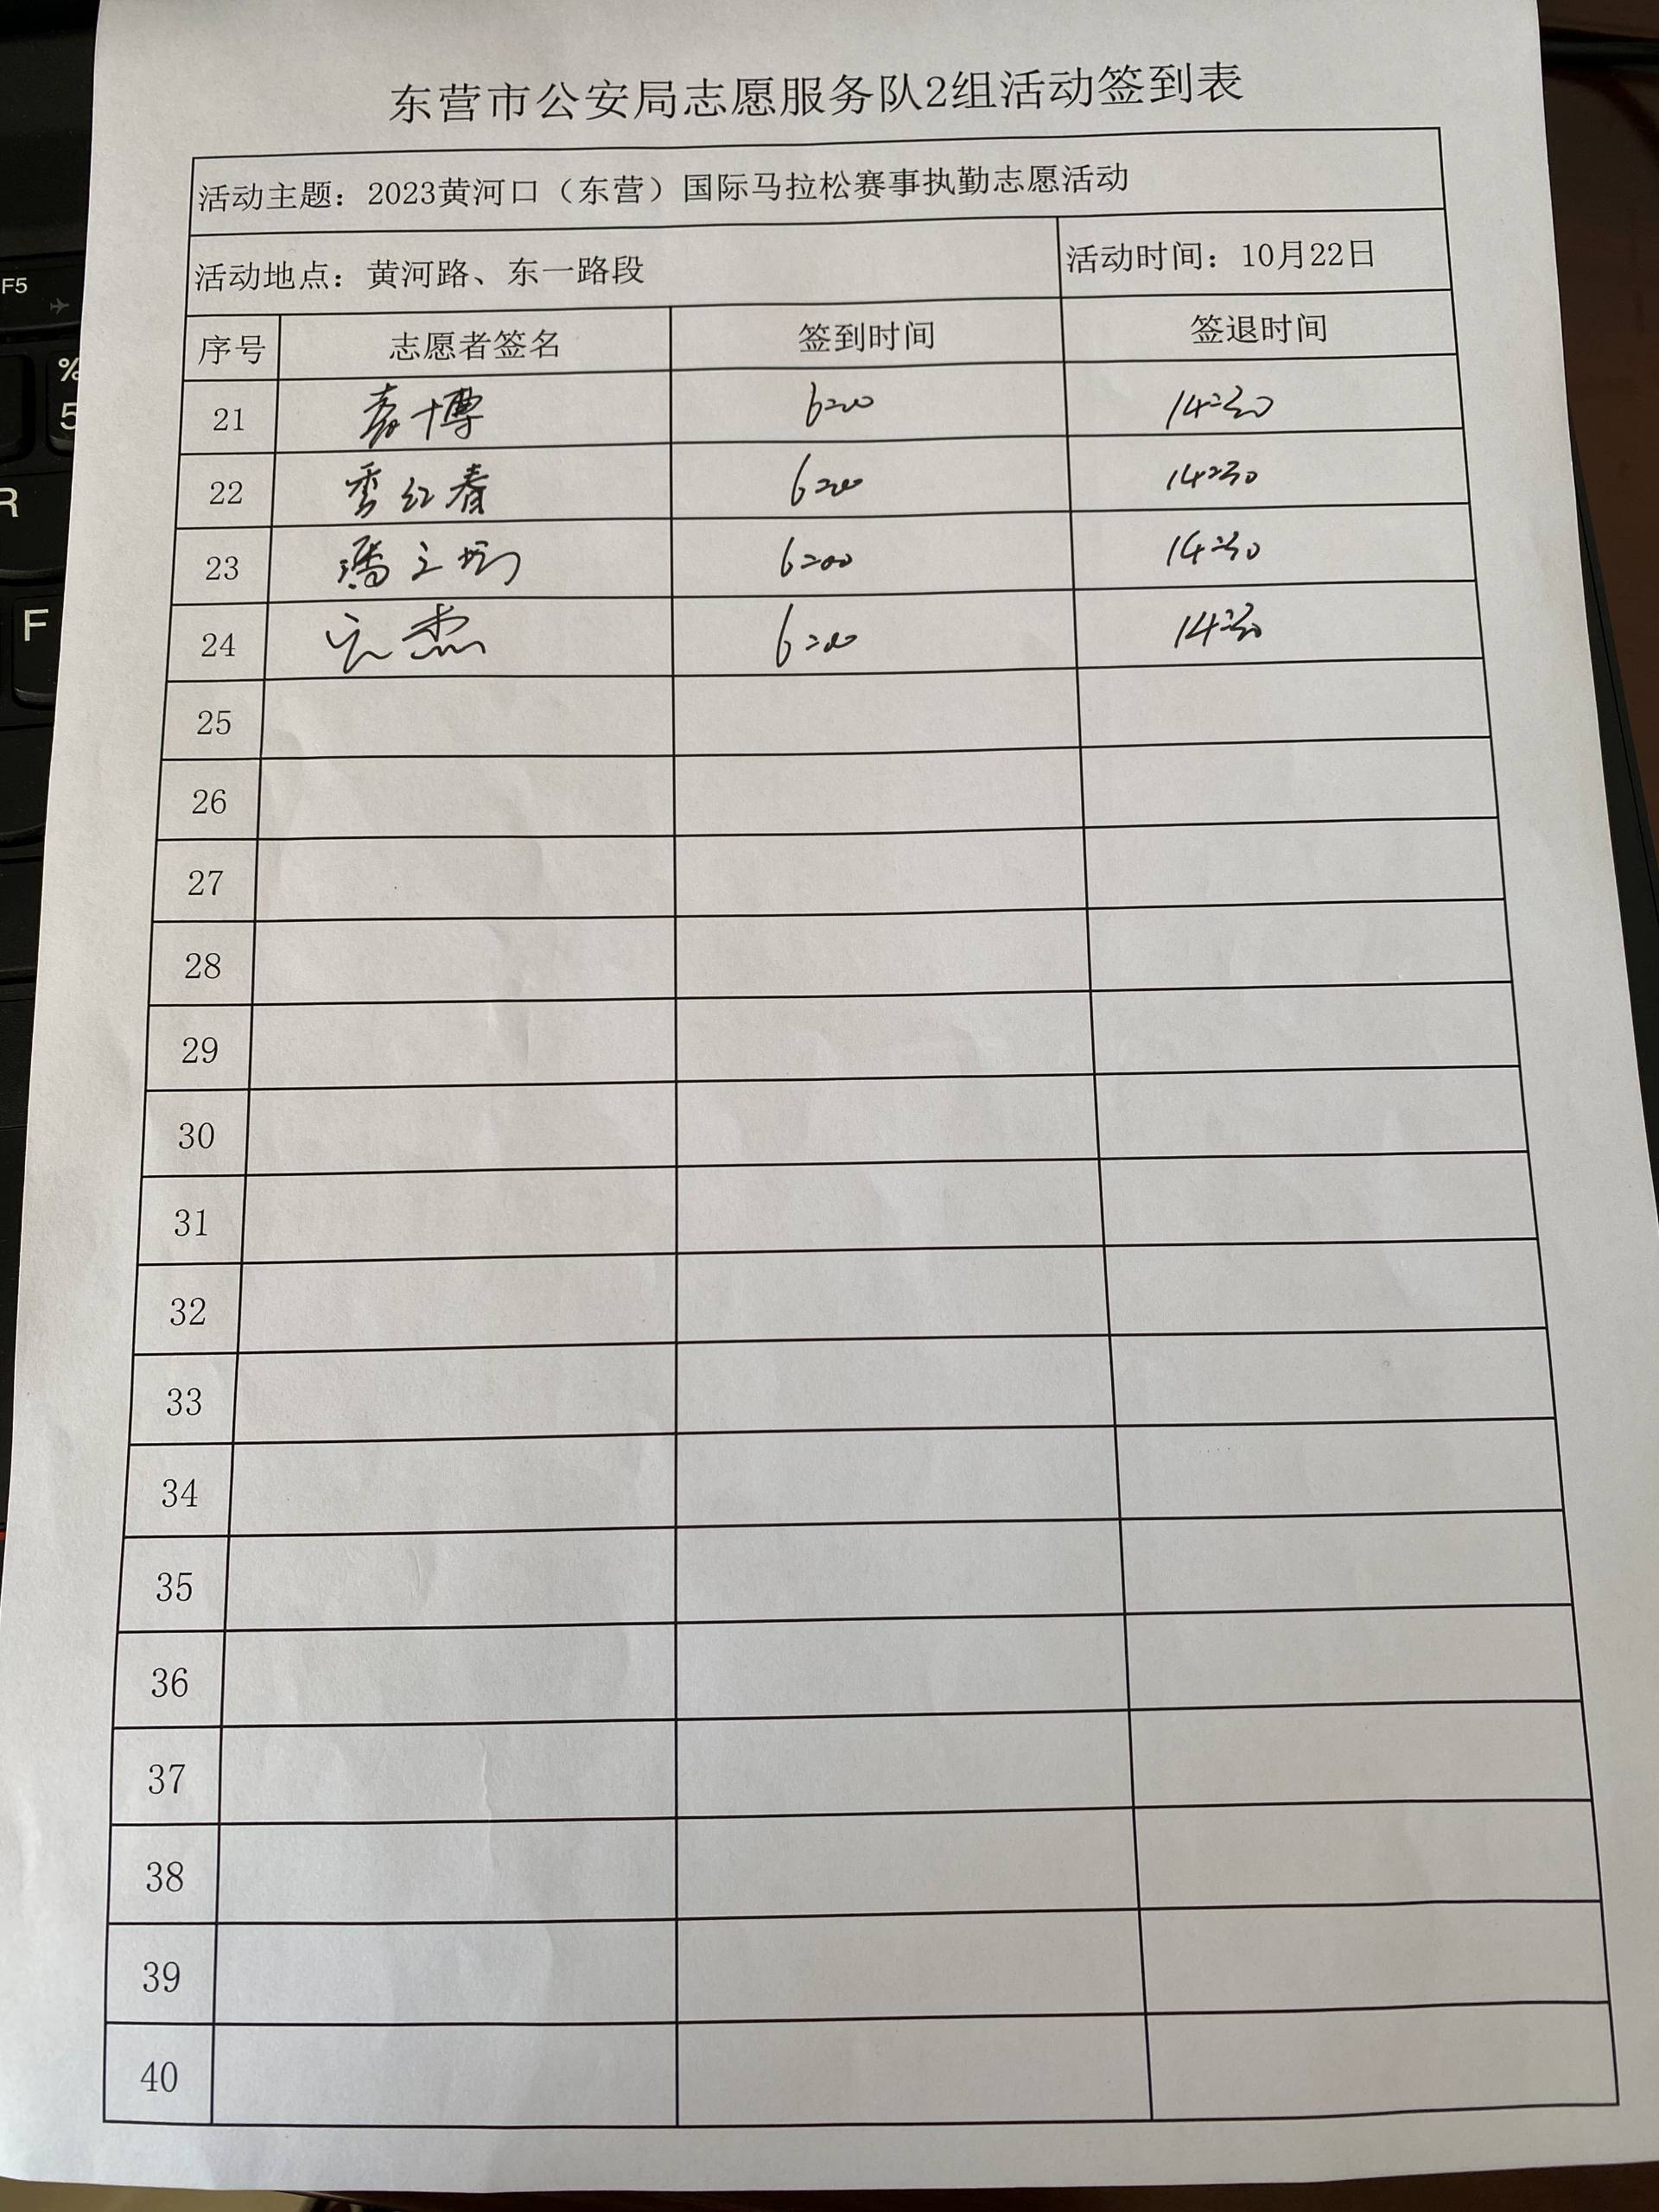 东营市公安局志愿服务队2组活动签到表
活动主题：2023黄河口（东营）国际马拉松赛事执勤志愿活动
活动地点：黄河路、东一路段 活动时间：10月22日
序号 志愿者签名 签到时间 签退时间
21 博 6:00 14:30
22 季红春 6:00 14:30
23 潘立 6:00 14:30
24 杰 6:00 14:30
25
26
27
28
29
30
31
32
33
34
35
36
37
38
39
40
F5
%
5
R
F